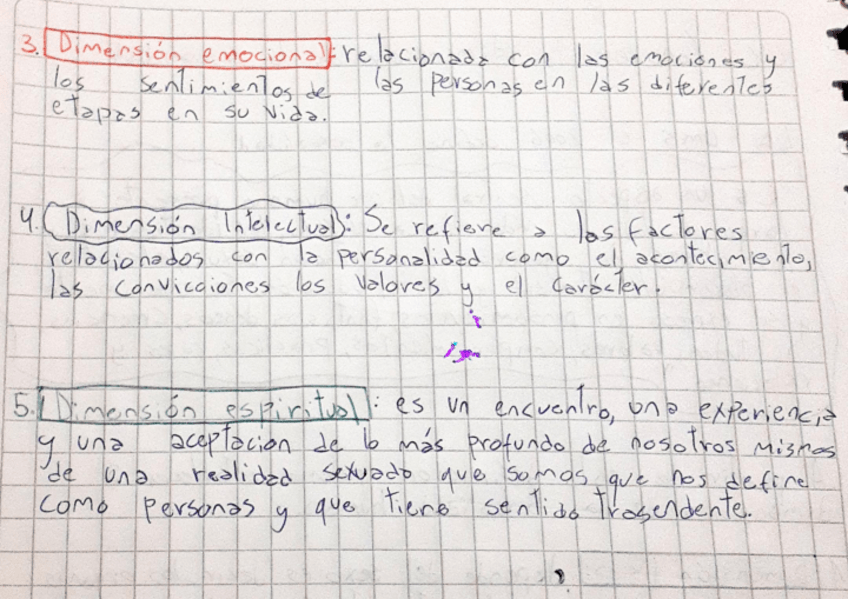 3. Dimensión emocional: relacionada con las emociones y
los sentimientos de las personas en las diferentes
etapas en su vida.
4. Dimensión Intelectual: Se refiere a las factores
relacionados con la personalidad como el acontecimiento,
las convicciones los valores y el carácter.
5. Dimensión espiritual: es un encuentro, una experiencia
y una aceptacion de lo más profundo de nosotros mismos
de una realidad sexuado que somos que nos define
como personas y que tiene sentido trasendente.